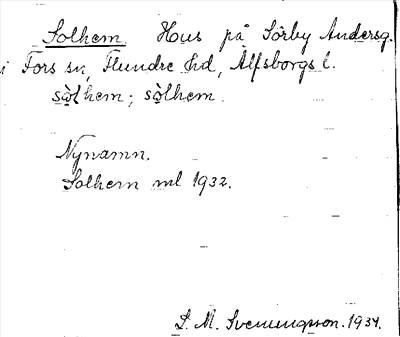 Solhem. Hus på Sörby Andersg.
i Fors sn, Flundre hd, Älfsborgs l.
sòlhem; sòlhem.
Nynamn.
Solhem ml 1932.
S. M. Svenungsson. 1934.